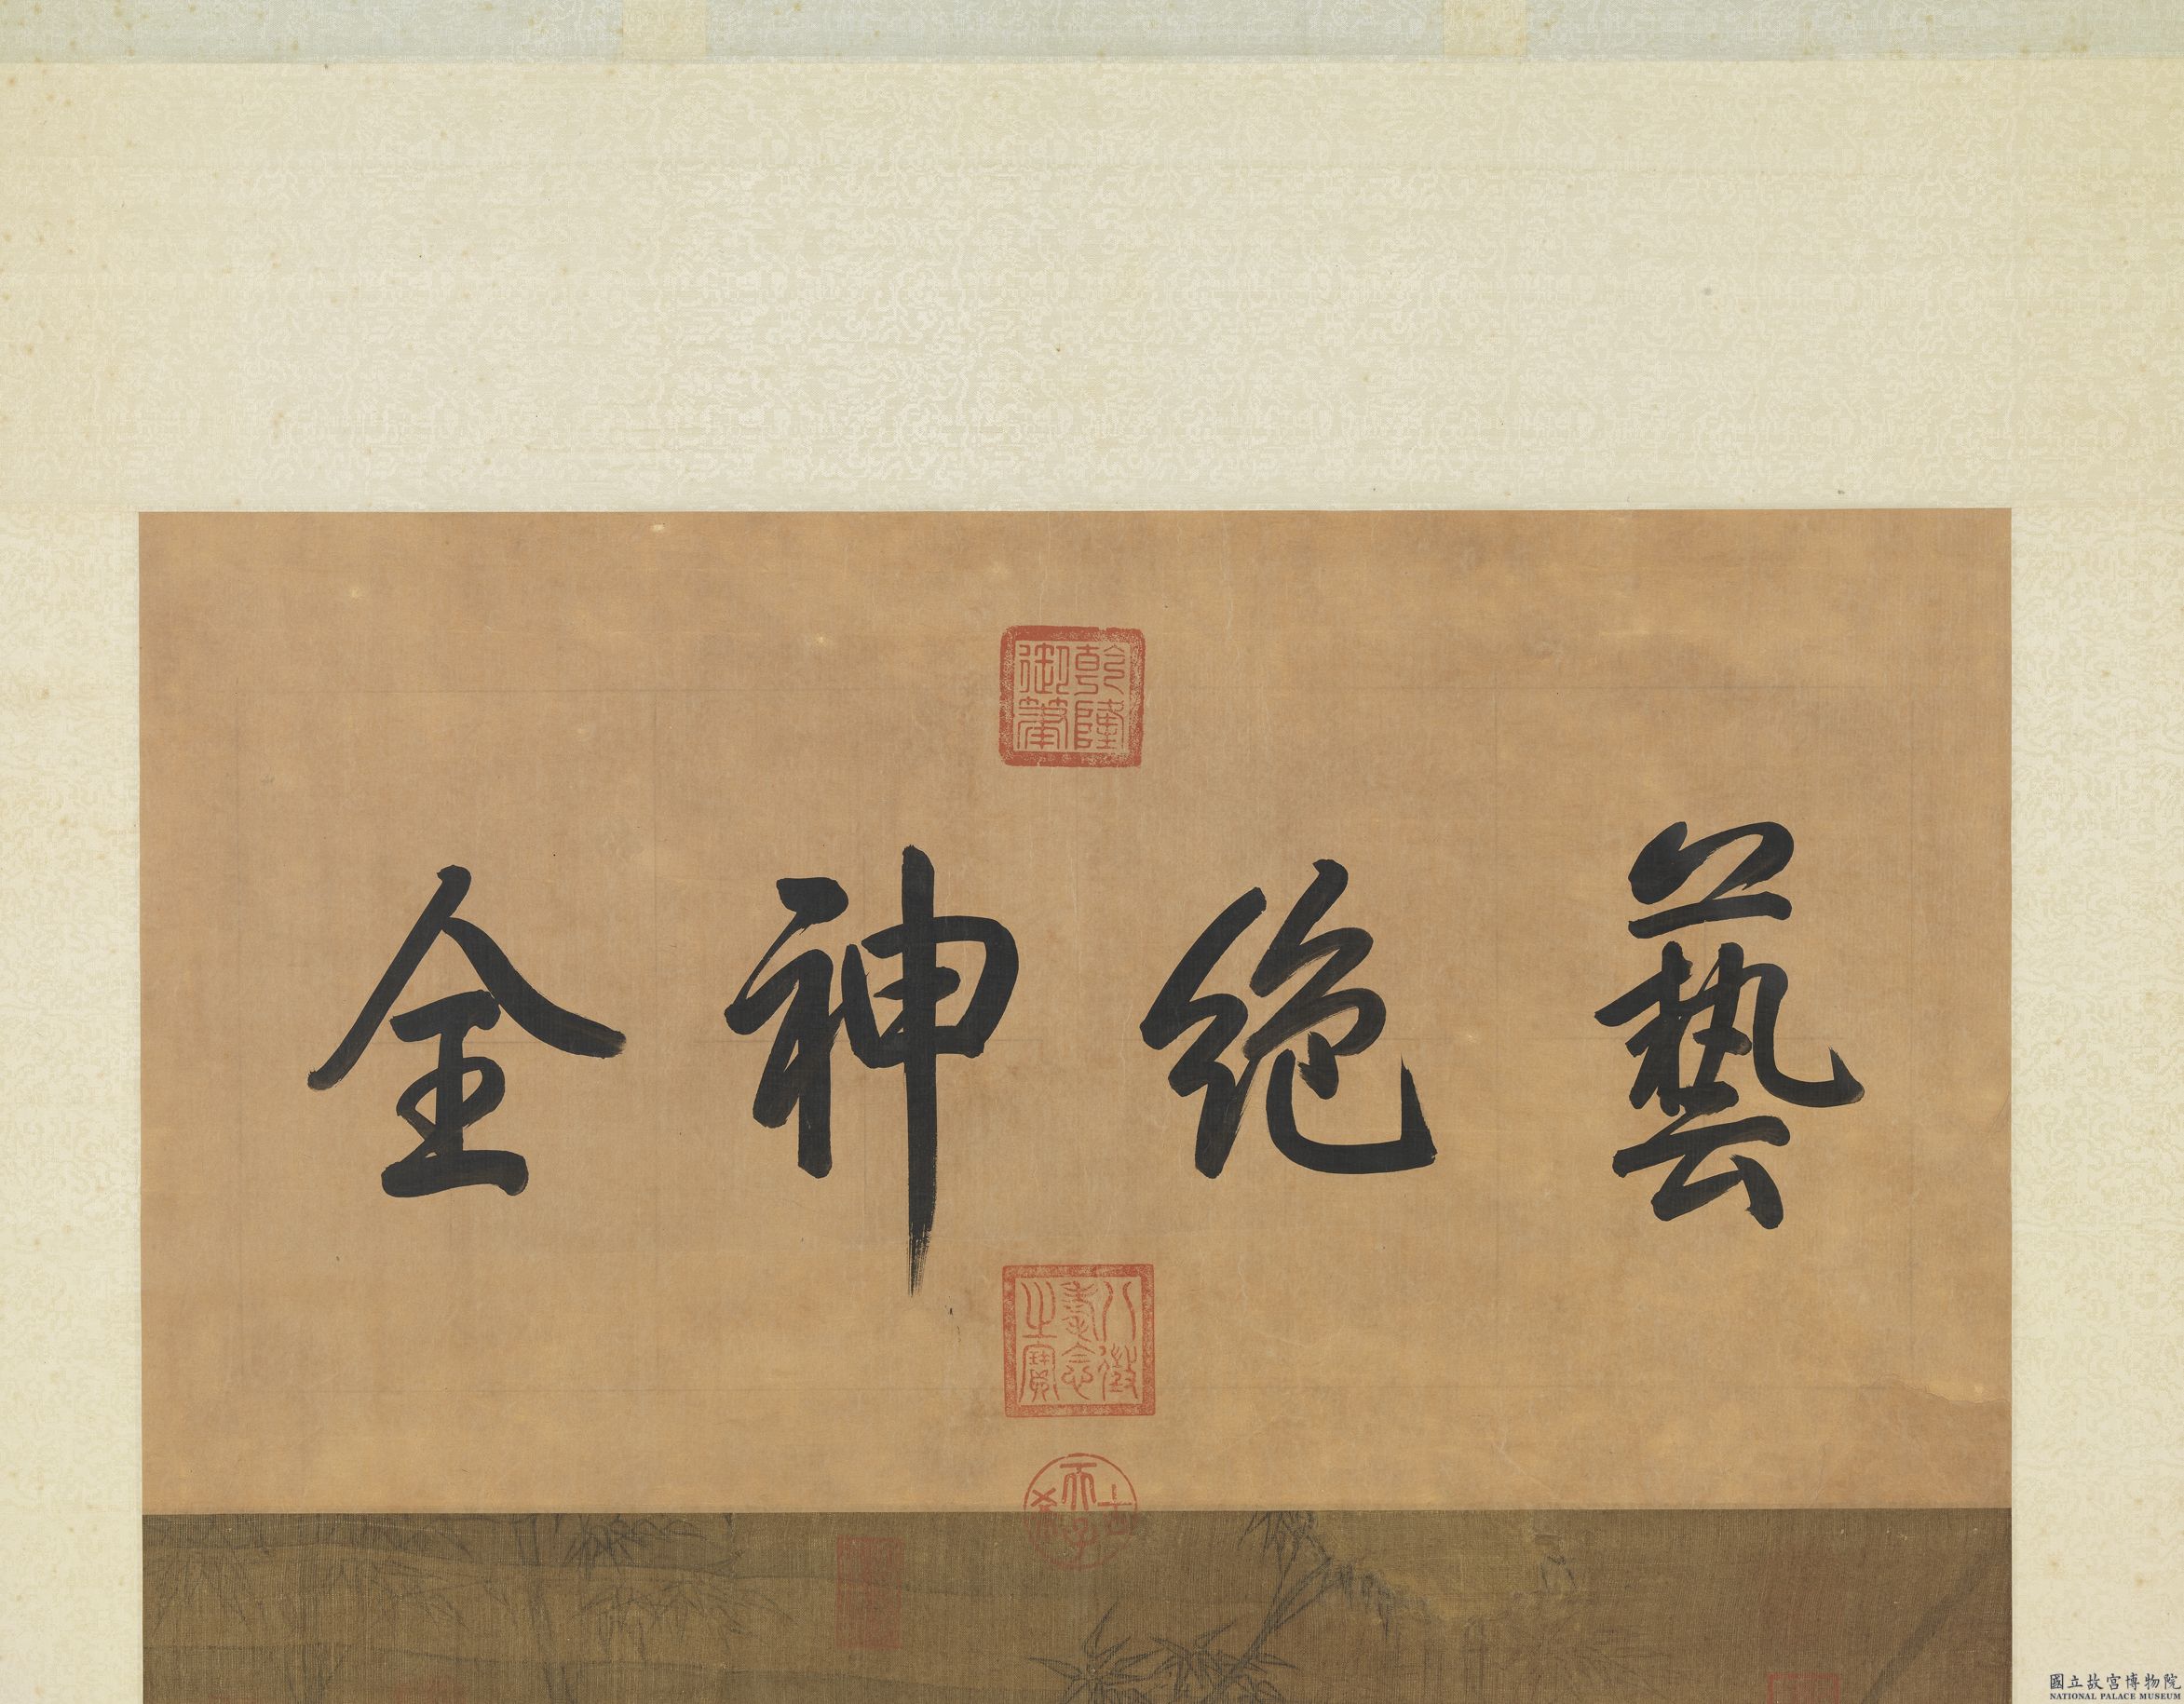 乾隆御筆
藝絕神全
八徵耄念之寶
古希天子
國立故宮博物院
NATIONAL PALACE MUSEUM